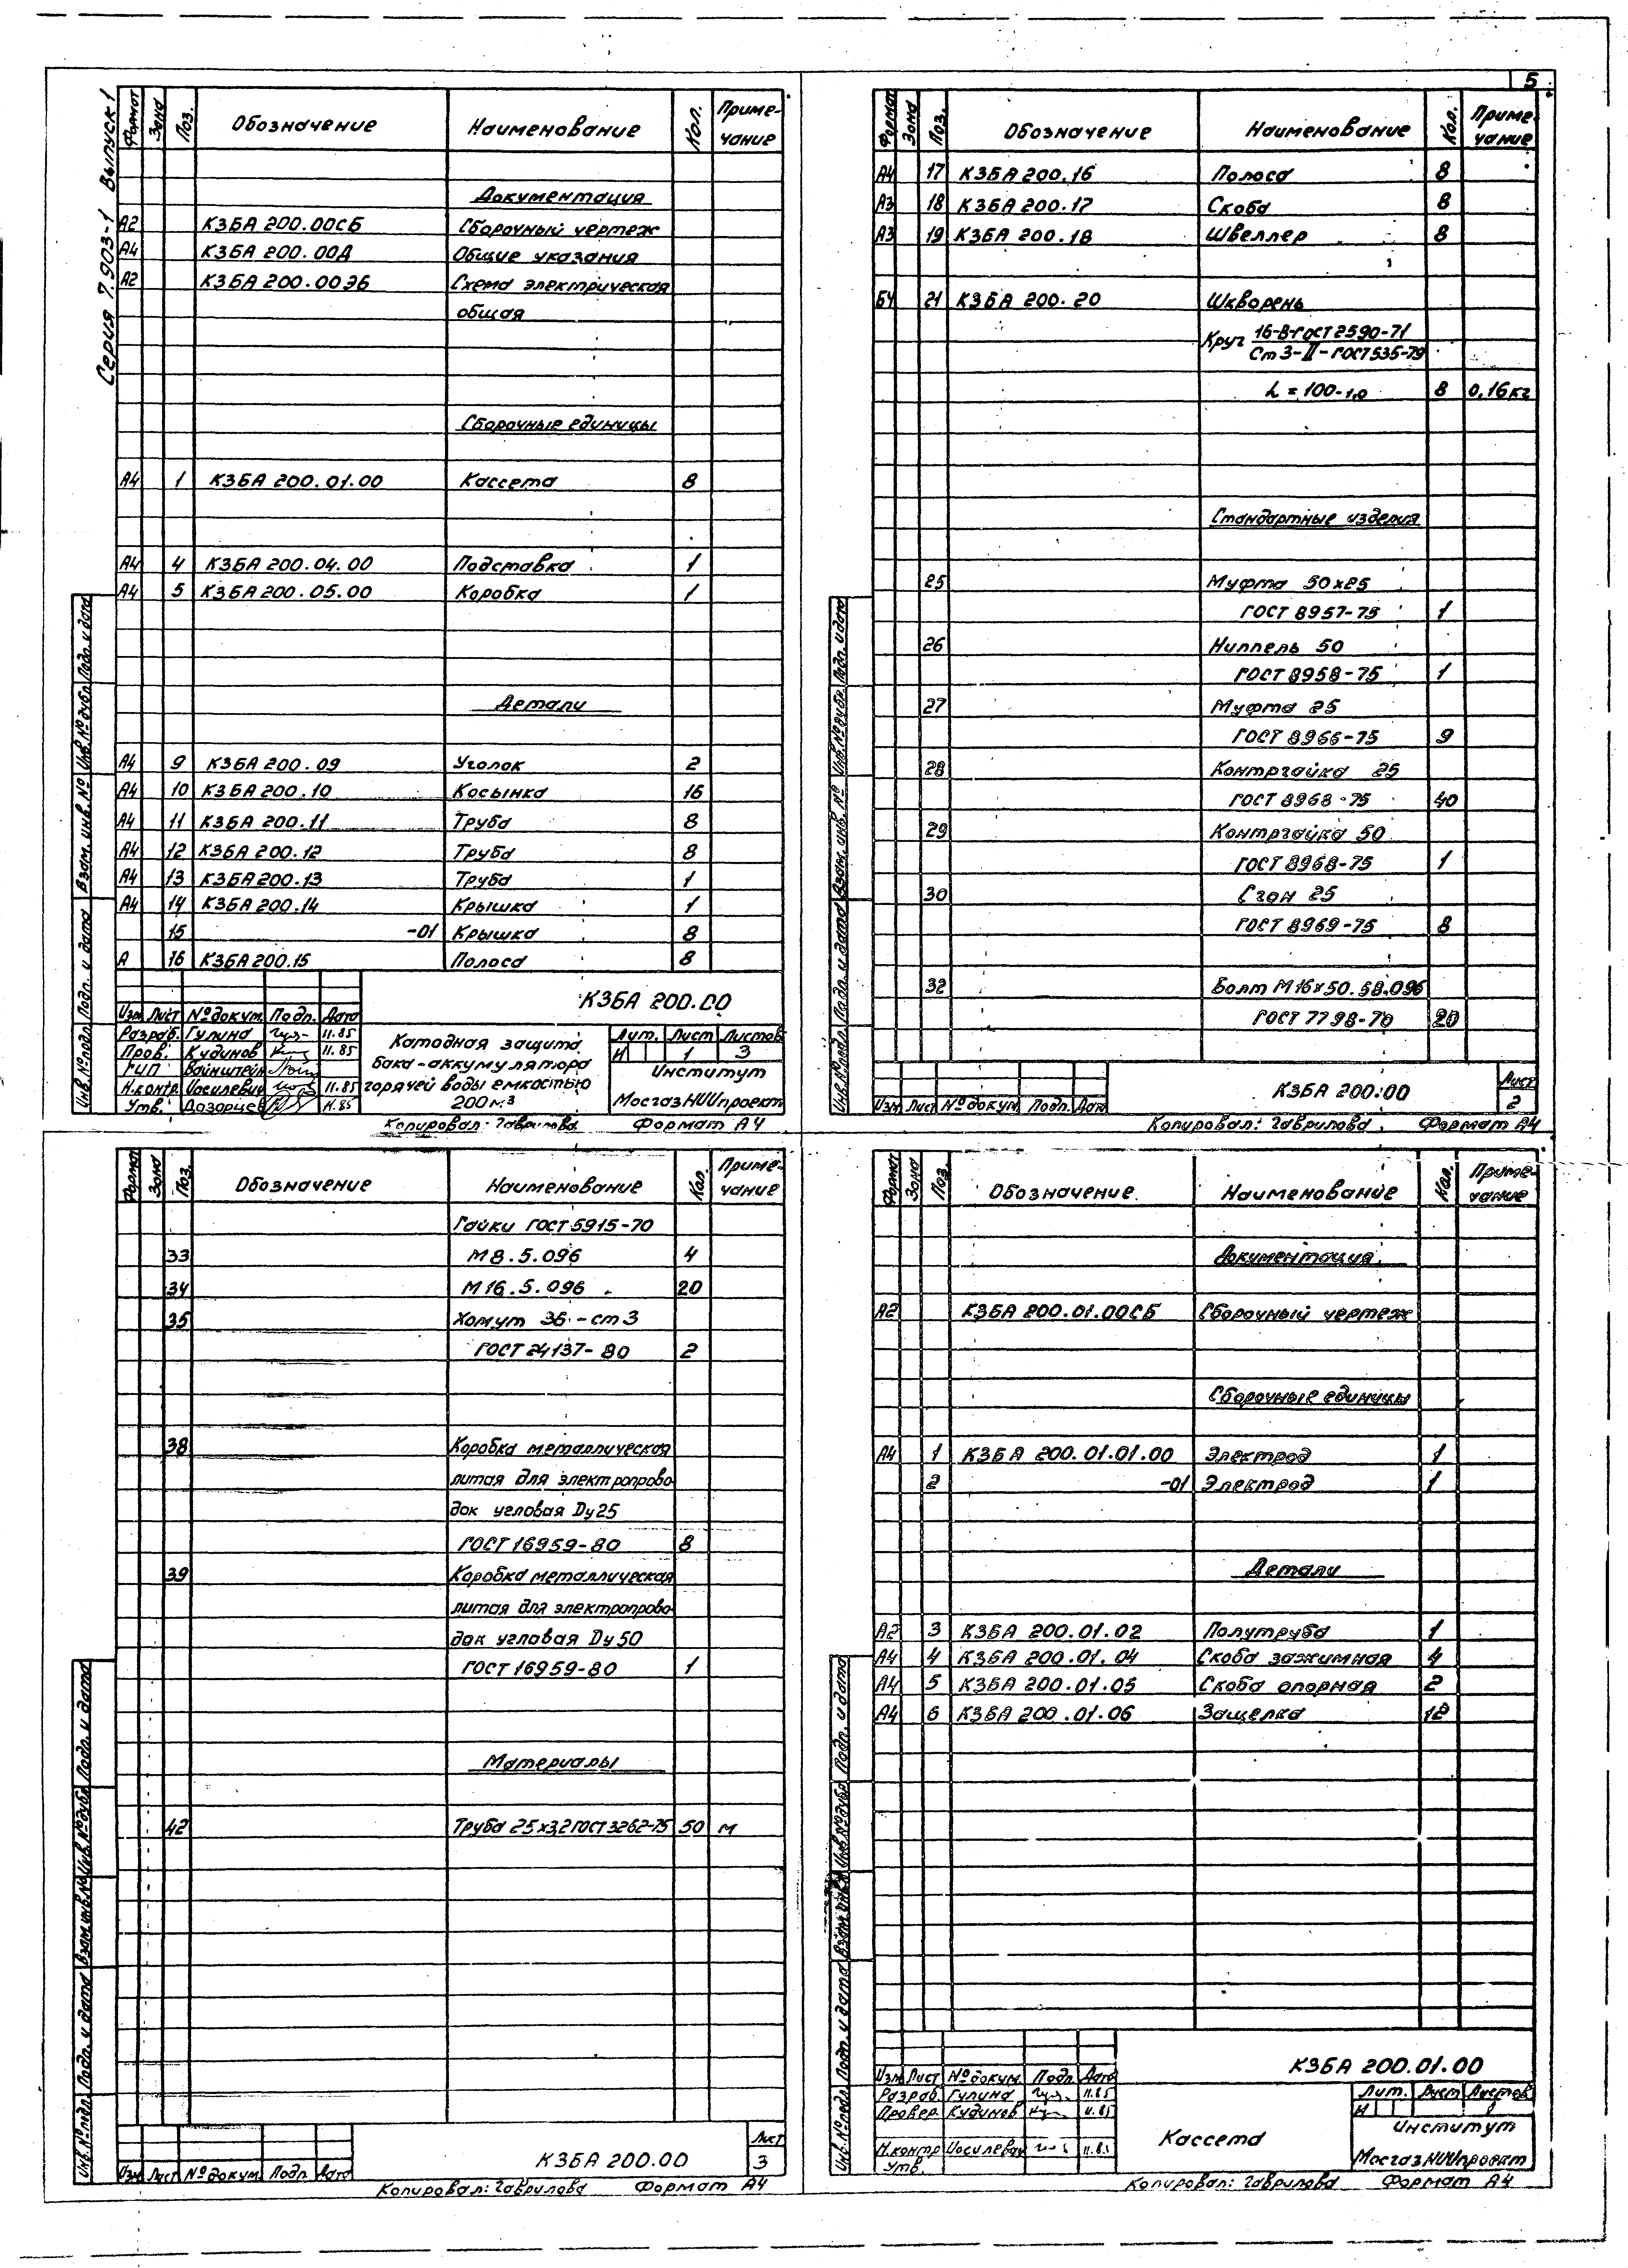 5
Серия 7.903-1 Выпуск 1
Формат Зона Поз. Обозначение Наименование Кол. Приме-
чание
Документация
А2 КЗБА 200.00СБ Сборочный чертеж
А4 КЗБА 200.00Д Общие указания
А2 КЗБА 200.00Э6 Схема электрическая
общая
Сборочные единицы
А4 1 КЗБА 200.01.00 Кассета 8
А4 4 КЗБА 200.04.00 Подставка 1
А4 5 КЗБА 200.05.00 Коробка 1
Детали
А4 9 КЗБА 200.09 Уголок 2
А4 10 КЗБА 200.10 Косынка 16
А4 11 КЗБА 200.11 Труба 8
А4 12 КЗБА 200.12 Труба 8
А4 13 КЗБА 200.13 Труба 1
А4 14 КЗБА 200.14 Крышка 1
15 -01 Крышка 8
А 16 КЗБА 200.15 Полоса 8
КЗБА 200.00
Изм Лист № докум. Подп. Дата
Разраб. Гулина 11.85
Пров. Кудинов 11.85
ГИП Вайнштейн
Н.контр. Иосилевич 11.85
Утв. Дозорцев 11.85
Катодная защита
бака-аккумулятора
горячей воды емкостью
200 м³
Лит. Лист Листов
И 1 3
Институт
МосгазНИИпроект
Копировал: Гаврилова Формат А4
Инв. № подл. Подп. и дата Взам. инв. № Инв. № дубл. Подп. и дата
Формат Зона Поз. Обозначение Наименование Кол. Приме-
чание
А4 17 КЗБА 200.16 Полоса 8
А3 18 КЗБА 200.17 Скоба 8
А3 19 КЗБА 200.18 Швеллер 8
БЧ 21 КЗБА 200.20 Шкворень
Круг 16-В-ГОСТ 2590-71
Ст 3-II-ГОСТ 535-79
L = 100-1,0 8 0,16кг
Стандартные изделия
25 Муфта 50х25
ГОСТ 8957-75 1
26 Ниппель 50
ГОСТ 8958-75 1
27 Муфта 25
ГОСТ 8966-75 9
28 Контргайка 25
ГОСТ 8968-75 40
29 Контргайка 50
ГОСТ 8968-75 1
30 Сгон 25
ГОСТ 8969-75 8
32 Болт М16х50.58.096
ГОСТ 7798-70 20
КЗБА 200.00
Лист
2
Изм Лист № докум. Подп. Дата
Копировал: Гаврилова Формат А4
Инв. № подл. Подп. и дата Взам. инв. № Инв. № дубл. Подп. и дата
Формат Зона Поз. Обозначение Наименование Кол. Приме-
чание
Гайки ГОСТ 5915-70
33 М8.5.096 4
34 М16.5.096 20
35 Хомут 36-ст3
ГОСТ 24137-80 2
38 Коробка металлическая
литая для электропрово
док угловая Dу25
ГОСТ 16959-80 8
39 Коробка металлическая
литая для электропрово
док угловая Dу50
ГОСТ 16959-80 1
Материалы
42 Труба 25х3,2 ГОСТ 3262-75 50 м
КЗБА 200.00
Лист
3
Изм Лист № докум. Подп. Дата
Копировал: Гаврилова Формат А4
Инв. № подл. Подп. и дата Взам. инв. № Инв. № дубл. Подп. и дата
Формат Зона Поз. Обозначение Наименование Кол. Приме-
чание
Документация
А2 КЗБА 200.01.00СБ Сборочный чертеж
Сборочные единицы
А4 1 КЗБА 200.01.01.00 Электрод 1
2 -01 Электрод 1
Детали
А2 3 КЗБА 200.01.02 Полутруба 1
А4 4 КЗБА 200.01.04 Скоба зажимная 4
А4 5 КЗБА 200.01.05 Скоба опорная 2
А4 6 КЗБА 200.01.06 Защелка 12
КЗБА 200.01.00
Изм Лист № докум. Подп. Дата
Разраб. Гулина 11.85
Провер. Кудинов 11.85
Н.контр. Иосилевич 11.85
Утв.
Кассета
Лит. Лист Листов
И 1
Институт
МосгазНИИпроект
Копировал: Гаврилова Формат А4
Инв. № подл. Подп. и дата Взам. инв. № Инв. № дубл. Подп. и дата